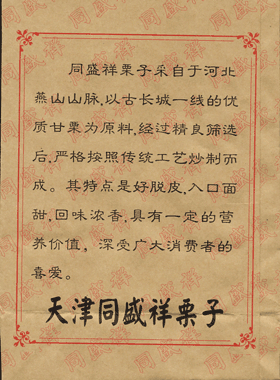 同盛祥栗子采自于河北
燕山山脉,以古长城一线的优
质甘栗为原料,经过精良筛选
后,严格按照传统工艺炒制而
成。其特点是好脱皮,入口面
甜,回味浓香,具有一定的营
养价值,深受广大消费者的
喜爱。
天津同盛祥栗子